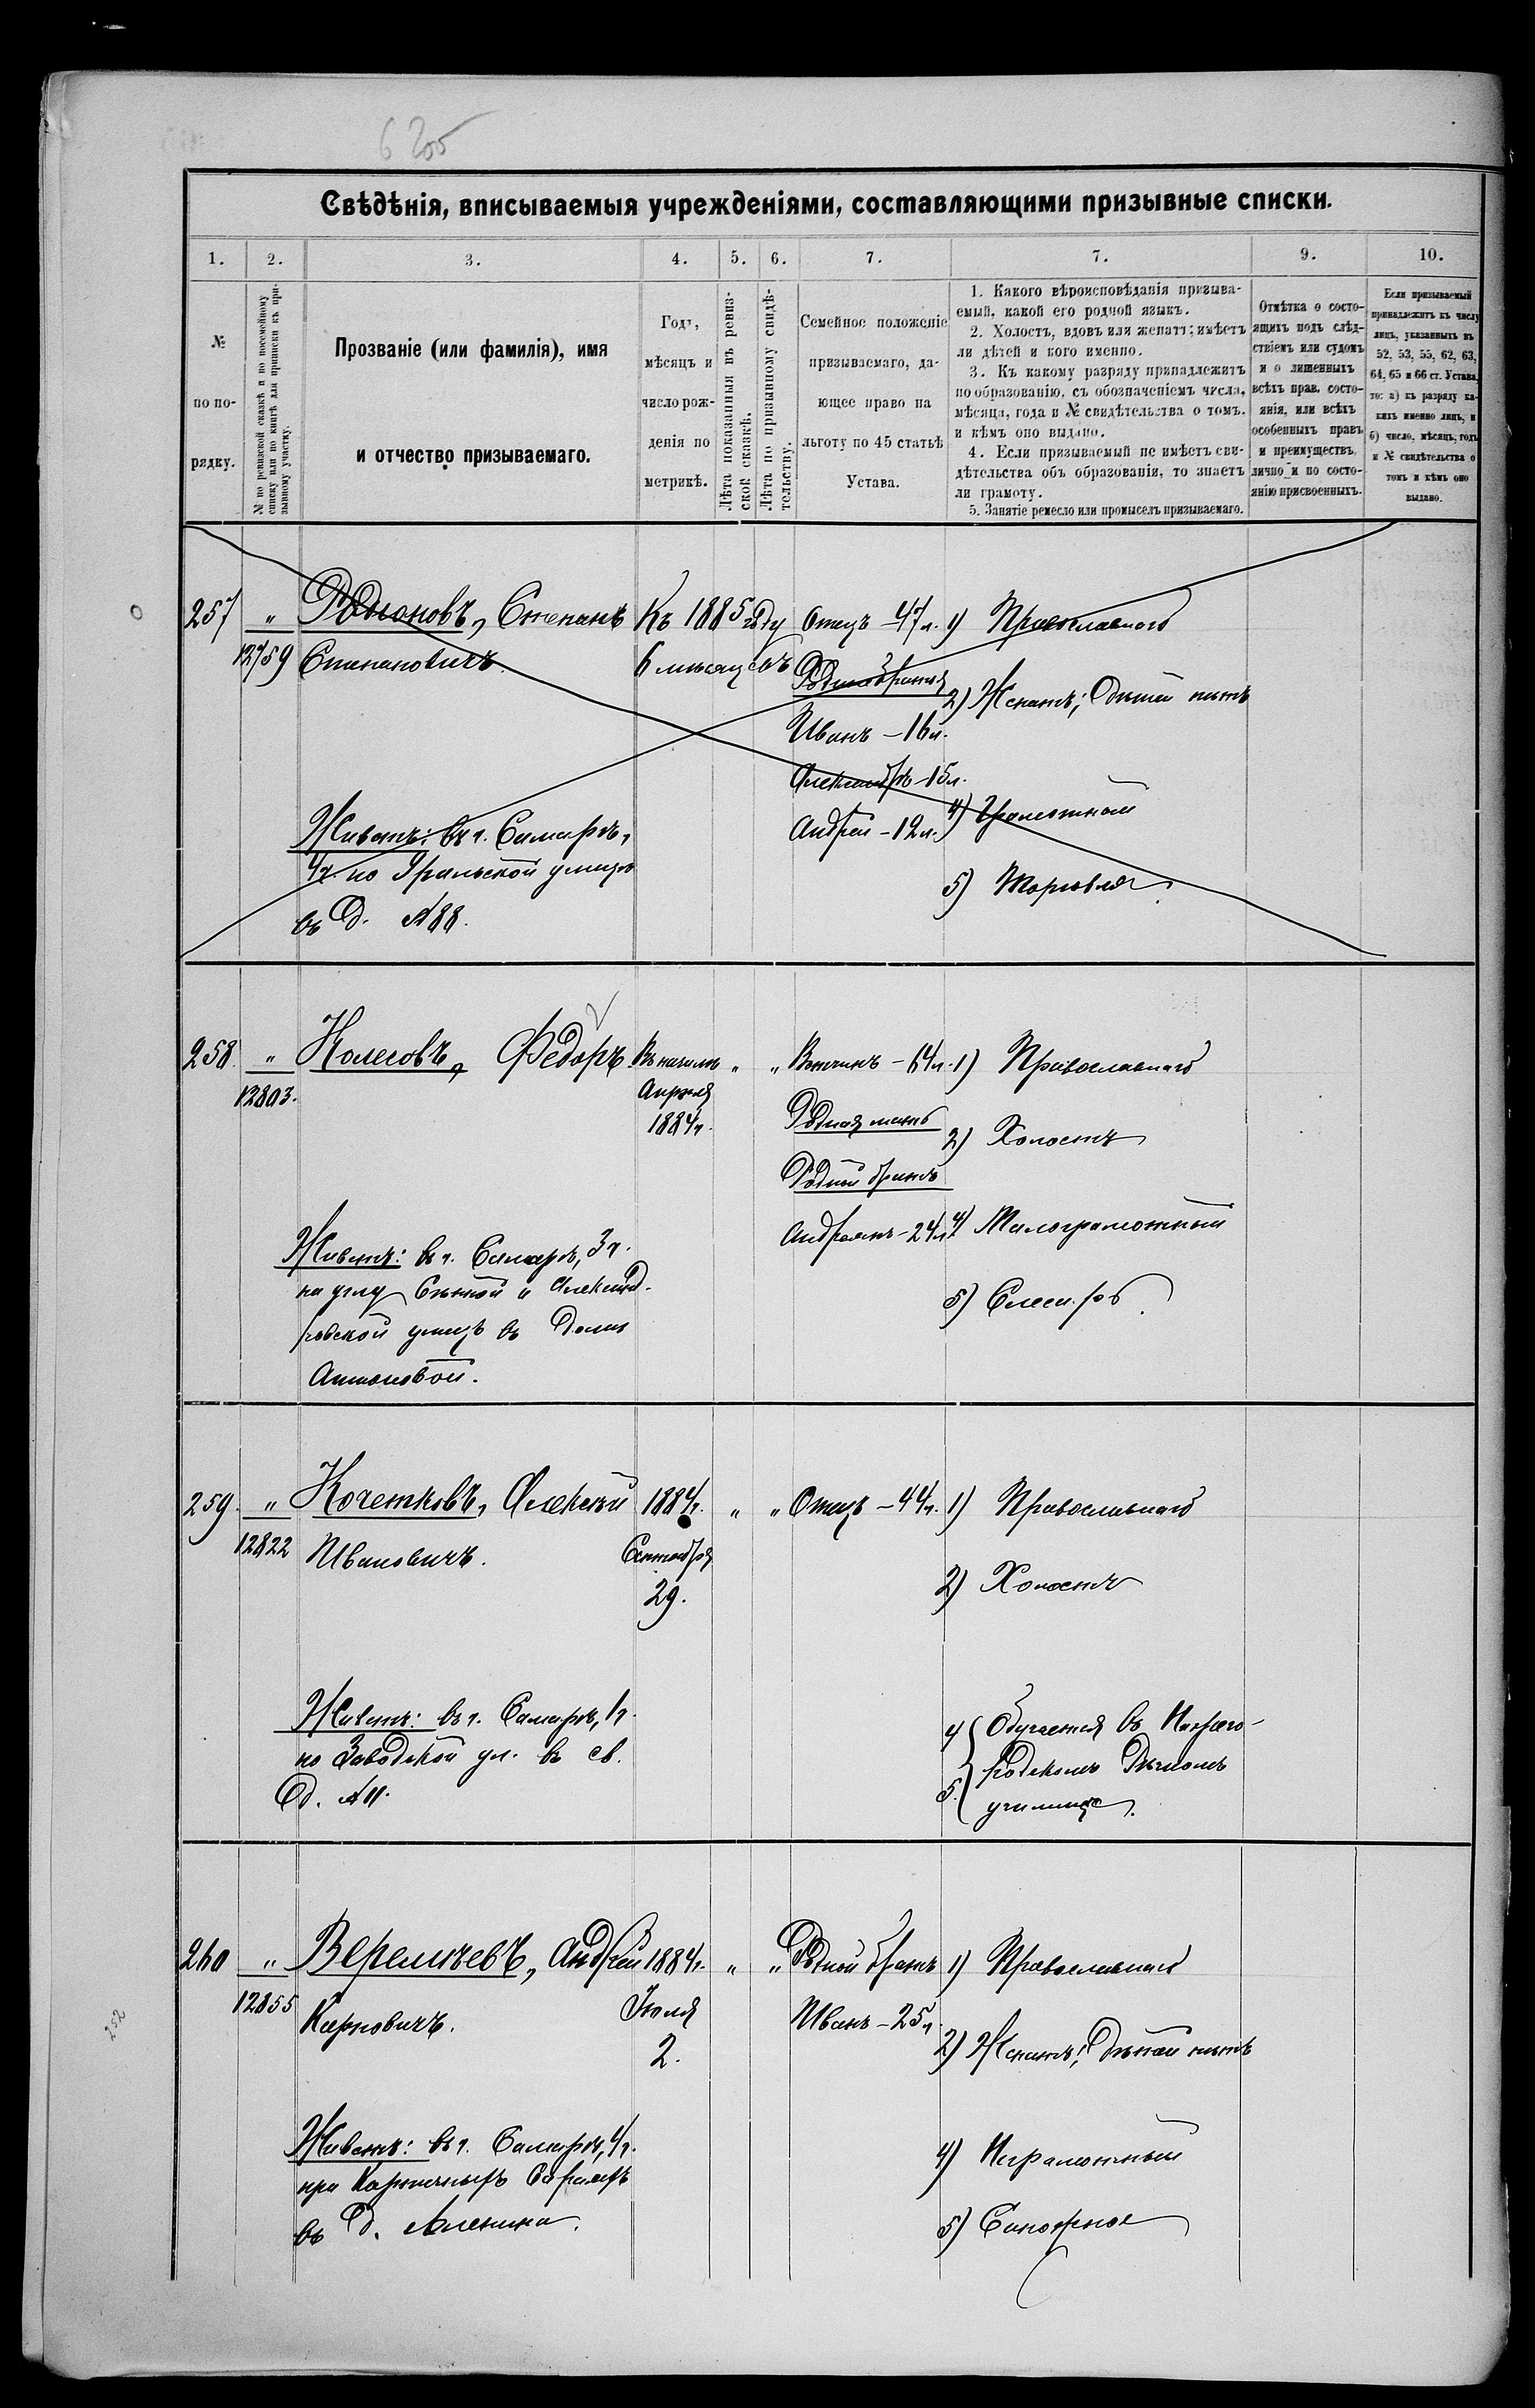 6 205
Свѣдѣнія, вписываемыя учрежденіями, составляющими призывные списки.
1. 2. 3. 4. 5. 6. 7. 7. 9. 10.
№
по по-
рядку.
№ по ревизской сказкѣ и по посемейному
списку или по книгѣ для приписки къ при-
зывному участку.
Прозваніе (или фамилія), имя
и отчество призываемаго.
Годъ,
мѣсяцъ и
число рож-
денія по
метрикѣ.
Лѣта показанныя въ ревиз-
ской сказкѣ.
Лѣта по призывному свидѣ-
тельству.
Семейное положеніе
призываемаго, да-
ющее право на
льготу по 45 статьѣ
Устава.
1. Какого вѣроисповѣданія призыва-
емый, какой его родной языкъ.
2. Холостъ, вдовъ или женатъ; имѣетъ
ли дѣтей и кого именно.
3. Къ какому разряду принадлежитъ
по образованію, съ обозначеніемъ числа,
мѣсяца, года и № свидѣтельства о томъ,
и кѣмъ оно выдано.
4. Если призываемый не имѣетъ сви-
дѣтельства объ образованіи, то знаетъ
ли грамоту.
5. Занятіе ремесло или промыселъ призываемаго.
Отмѣтка о состо-
ящихъ подъ слѣд-
ствіемъ или судомъ
и о лишенныхъ
всѣхъ прав. состо-
янія, или всѣхъ
особенныхъ правъ
и преимуществъ,
лично и по состо-
янію присвоенныхъ.
Если призываемый
принадлежитъ къ числу
лицъ, указанныхъ въ
52, 53, 55, 62, 63,
64, 65 и 66 ст. Устава,
то: а) къ разряду ка-
кихъ именно лицъ, и
б) число, мѣсяцъ, годъ
и № свидѣтельства о
томъ и кѣмъ оно
выдано.
257 " Родионовъ, Степанъ Къ 1885 году Отецъ 47 л. 1) Православнаго
12759 Степановичъ. 6 мѣсяцевъ
Родные братья
2) Женатъ; Дѣтей нѣтъ
Иванъ - 16 л.
Александръ - 15 л.
Андрей - 12 л. 4) Грамотный
Живетъ: въ г. Самарѣ,
4 ч. по Уральской улицѣ
въ д. № 88.
5) Торговля.
258. " Колесовъ, Федоръ Въ началѣ " " Вотчимъ - 1) Православнаго
12803.
Апрѣля
1884 г.
Родная мать
2) Холостъ
Родной братъ
Андреянъ - 24 л. 4) Малограмотный
Живетъ: въ г. Самарѣ, 3 ч.
на углу Сѣнной и Александ-
ровской улицъ въ домѣ
Антоновой.
5) Слесарь.
259. " Кочетковъ, Алексѣй 1884 г. " " Отецъ - 44 л. 1) Православнаго
12822 Ивановичъ. Сентября
29.
2) Холостъ
Живетъ: въ г. Самарѣ, 1 ч.
по Заводской ул. въ св.
д. № 11.
4) Обучается въ
5. родскомъ
училищѣ.
260 " Веремѣевъ, Андрей 1884 г. " " Родной братъ 1) Православнаго
12855 Карповичъ. Іюля Иванъ - 25 л.
2.
2) Женатъ; Дѣтей нѣтъ
Живетъ: въ г. Самарѣ, 4 ч.
при Кирпичныхъ Сараяхъ
въ д. Аленина.
4) Неграмотный
5) Сапожное
252